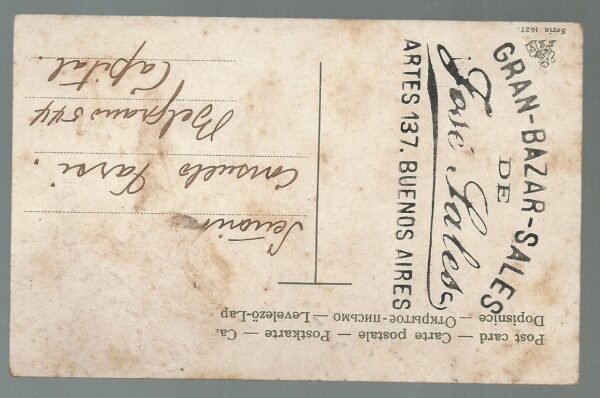 Post card — Carte postale — Postkarte — Ca
Dopisnice — Открытое-письмо — Levelezö-Lap
GRAN-BAZAR-SALES
DE
José Sales
ARTES 137. BUENOS AIRES
Señorit
Consuelo
Belgrano 544
Capital.
Serie 1627.